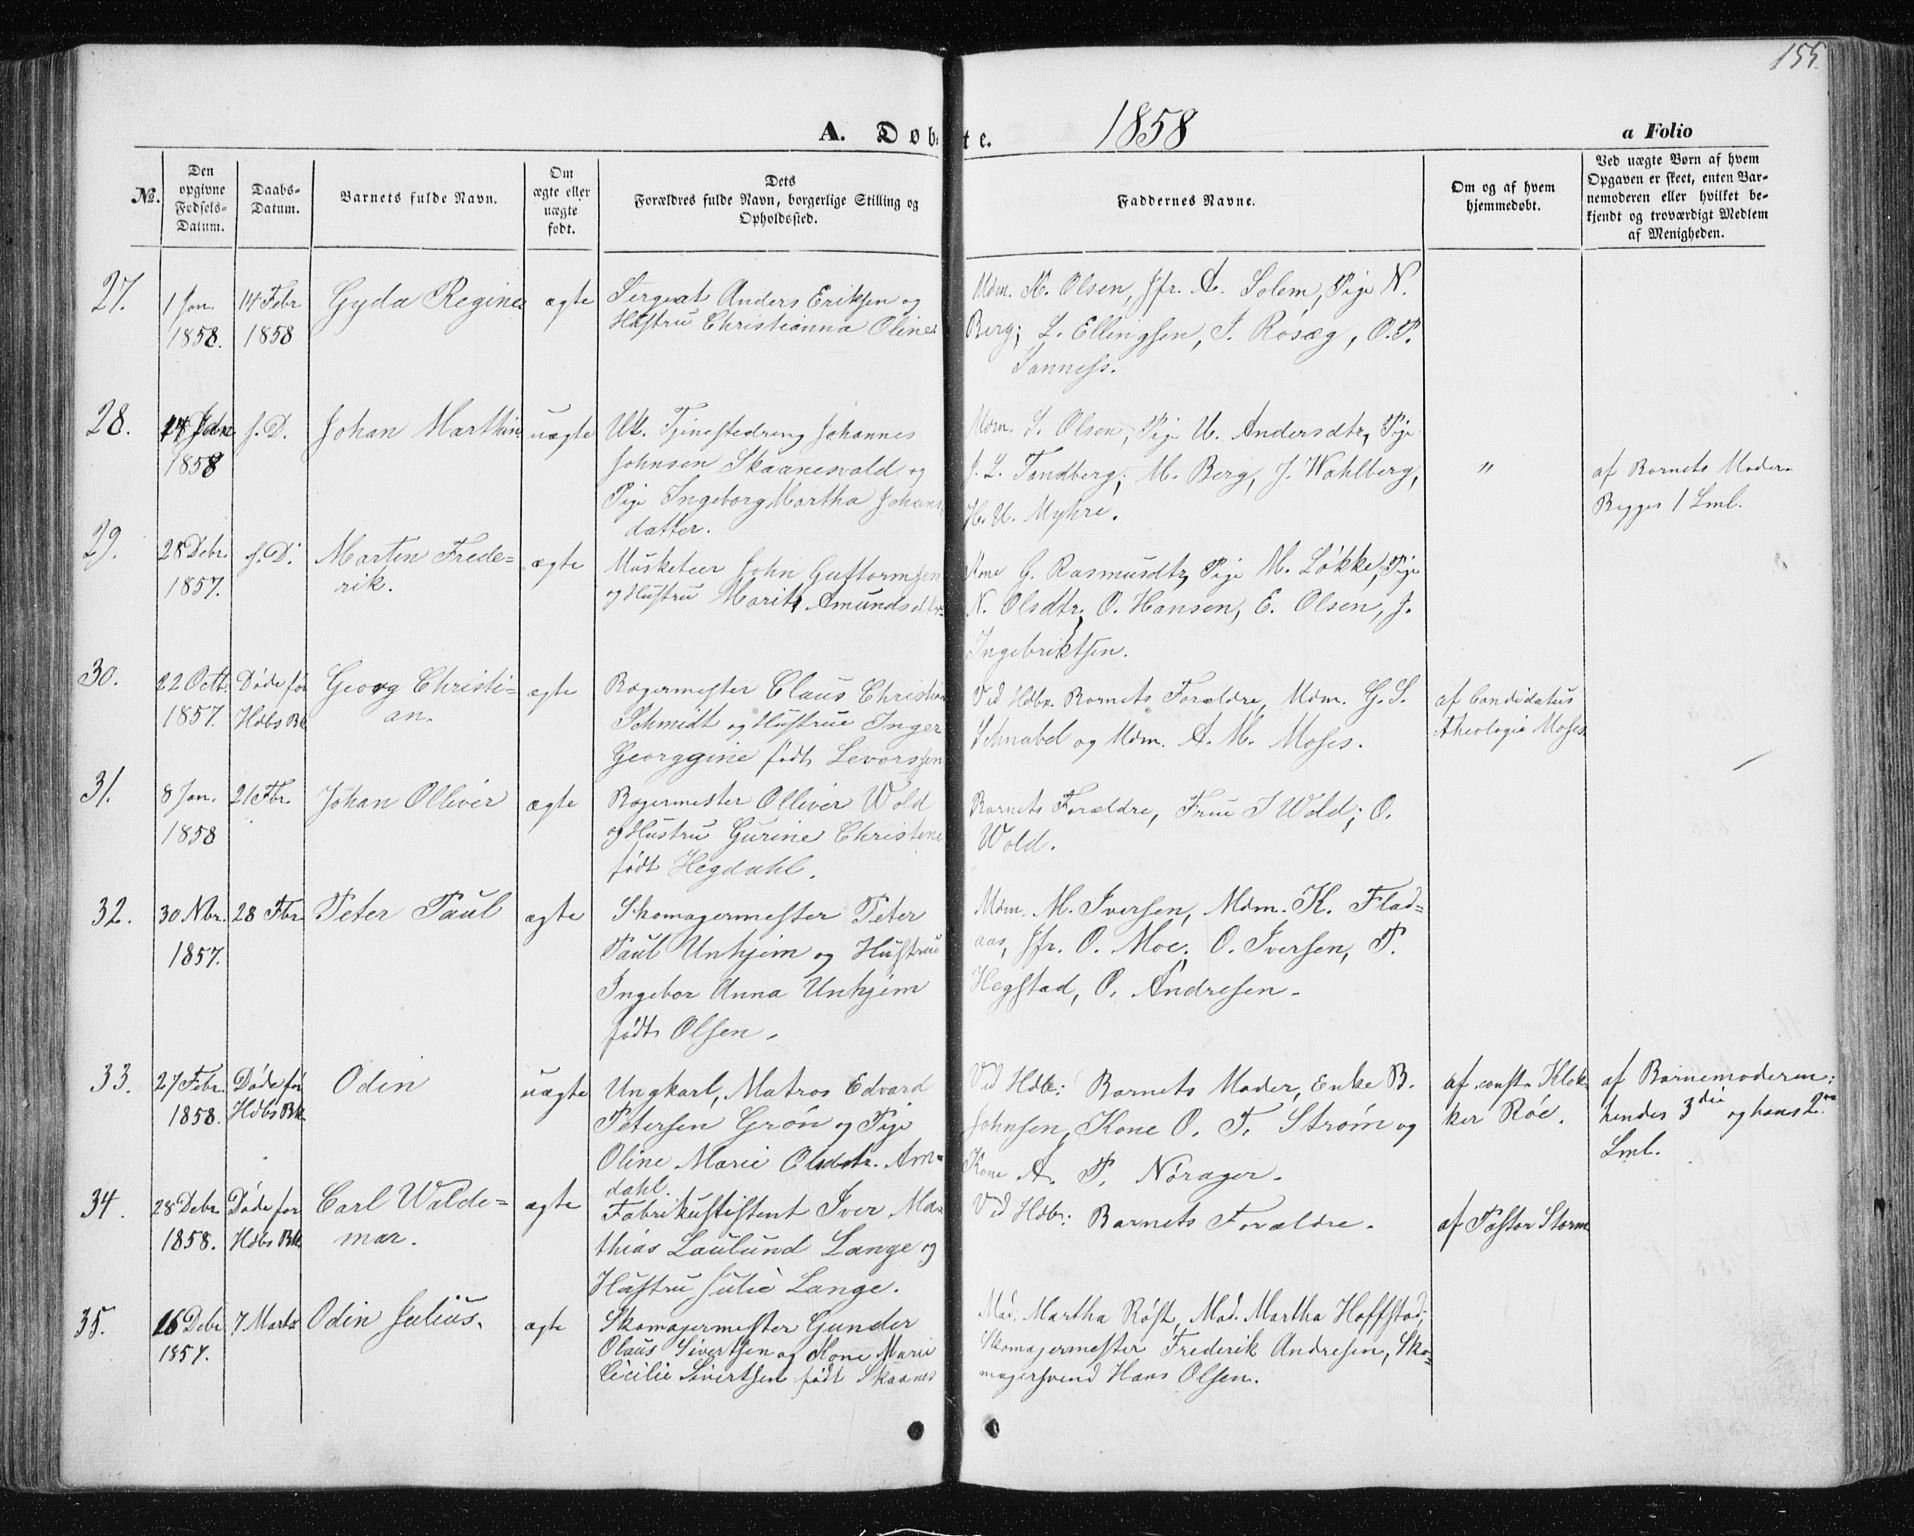 155.
A. Døbte.
1858
a Folio
No.
Den opgivne Fødsels-Datum.
Daabs-Datum.
Barnets fulde Navn.
Om ægte eller uægte født.
Dets Forældres fulde Navn, borgerlige Stilling og Opholdssted.
Faddernes Navne.
Om og af hvem hjemmedøbt.
Ved uægte Børn af hvem Opgaven er skeet, enten Barnemoderen eller hvilket bekjendt og troværdigt Medlem af Menigheden.
27.
1 Jan.
1858.
14 Febr
1858
Gyda Regine
ægte
Sergeat Anders Eriksen og
Hustru Christianna Oline
Mdm. K. Olsen, Jfr. A. Solem, Pige N.
Berg; L. Ellingsen, J. Rosæg, O. P.
Sanness.
28.
14 Jan
1858
s. D.
Johan Marthin
uægte
Uk. Tjenestedreng Johannes
Johnsen Skaanesvald og
Pige Ingeborg Martha Johans
datter.
Mdm. S. Olsen, Pige U. Andersdtr, Pige
J. L. Tandberg; M. Berg, J. Wahlberg,
H. U. Myhre.
"
af Barnets Moder
Begges 1 Lml.
29.
28 Debr.
1857.
s. D.
Martin Frede-
rik.
ægte
Musketeer John Guttormsen
og Hustru Marit Amundsdtr
Kone G. Rasmusdtr, Pige M. Løkke, Pige
N. Olsdtr; O. Hansen, E. Olsen, J.
Ingebriktsen.
30.
22 Octb.
1857.
Døde før
Hdbs Bk
Georg Christi-
an.
ægte
Bagermester Claus Christian
Schmidt og Hustrue Inger
Georggine født Levorssen
Ved Hdbn. Barnets Forældre, Mdm. G. S.
Schnabel og Mdm. A. M. Moses.
af Candidatus
theologie Moses
31.
8 Jan.
1858
21 Fbr.
Johan Olliver
ægte
Bagermester Olliver Wold
og Hustru Gurine Christine
født Hegdahl.
Barnets Forældre, Frue J Wold; O.
Wold.
32.
30 Nbr.
1857.
28 Fbr
Peter Paul
ægte
Skomagermester Peter
Paul Unhjem og Hustrue
Ingebor Anna Unhjem
født Olsen.
Mdm. M. Iversen, Mdm. K. Flad-
aas, Jfr. O. Moe; O. Iversen, P.
Hegstad, O. Andresen.
33.
27 Febr.
1858.
Døde før
Hdbs Bk
Odin
uægte
Ungkarl, Matros Edvard
Petersen Grøn og Pige
Oline Marie Olsdtr. Am-
dahl.
Ved Hdb: Barnets Moder, Enke B.
Johnsen, Kone O. F. Strøm og
Kone A. P. Nørager.
af const. Klok-
ker Röe.
af Barnemoderen:
hendes 3die og hans 2
Lml.
34.
28 Debr
1858.
Døde før
Hdbs Bk
Carl Walde-
mar.
ægte
Fabrikustistent Iver Ma
thias Laulund Lange og
Hustru Julie Lange.
Ved Hdb: Barnets Forældre.
af Pastor Storm
35.
16 Debr
1857.
7 Marts
Odin Julius.
ægte
Skomagermester Gunder
Olaus Sivertsen og Kone Marie
Cicilie Sivertsen født Skaanes
Mad. Martha Røst, Mad. Martha Hoffstad;
Skomagermester Frederik Andresen, Sko-
magersvend Hans Olsen.